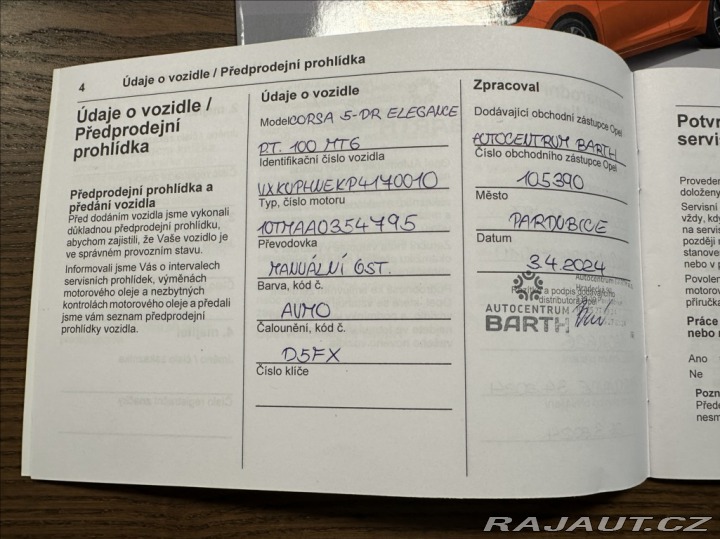 4
Údaje o vozidle / Předprodejní prohlídka
Údaje o vozidle /
Předprodejní
prohlídka
Předprodejní prohlídka a
předání vozidla
Před dodáním vozidla jsme vykonali
důkladnou předprodejní prohlídku,
abychom zajistili, že Vaše vozidlo je
ve správném provozním stavu.
Informovali jsme Vás o intervalech
servisních prohlídek, výměnách
motorového oleje a nezbytných
kontrolách motorového oleje a předali
jsme vám seznam předprodejní
prohlídky vozidla.
Údaje o vozidle
Model CORSA 5-DR ELEGANCE
P.T. 100 MT6
Identifikační číslo vozidla
VXKUPHNEKP4170010
Typ, číslo motoru
10TMAA0354795
Převodovka
MANUÁLNÍ 6ST.
Barva, kód č.
Čalounění, kód č.
D5FX
Číslo klíče
Zpracoval
Dodávající obchodní zástupce Opel
AUTOCENTRUM BARTH
Číslo obchodního zástupce Opel
105390
Město
PARDUBICE
Datum
3.4.2024
AUTOCENTRUM
BARTH
Potvr
servis
Provedení
doloženy
Servisní
vždy, kdy
na servis
později
stanove
nebo v
Povolen
motorov
příručka
Práce
nebo n
Ano
Ne
Pozn
Před
nesm
RAJAUT.CZ